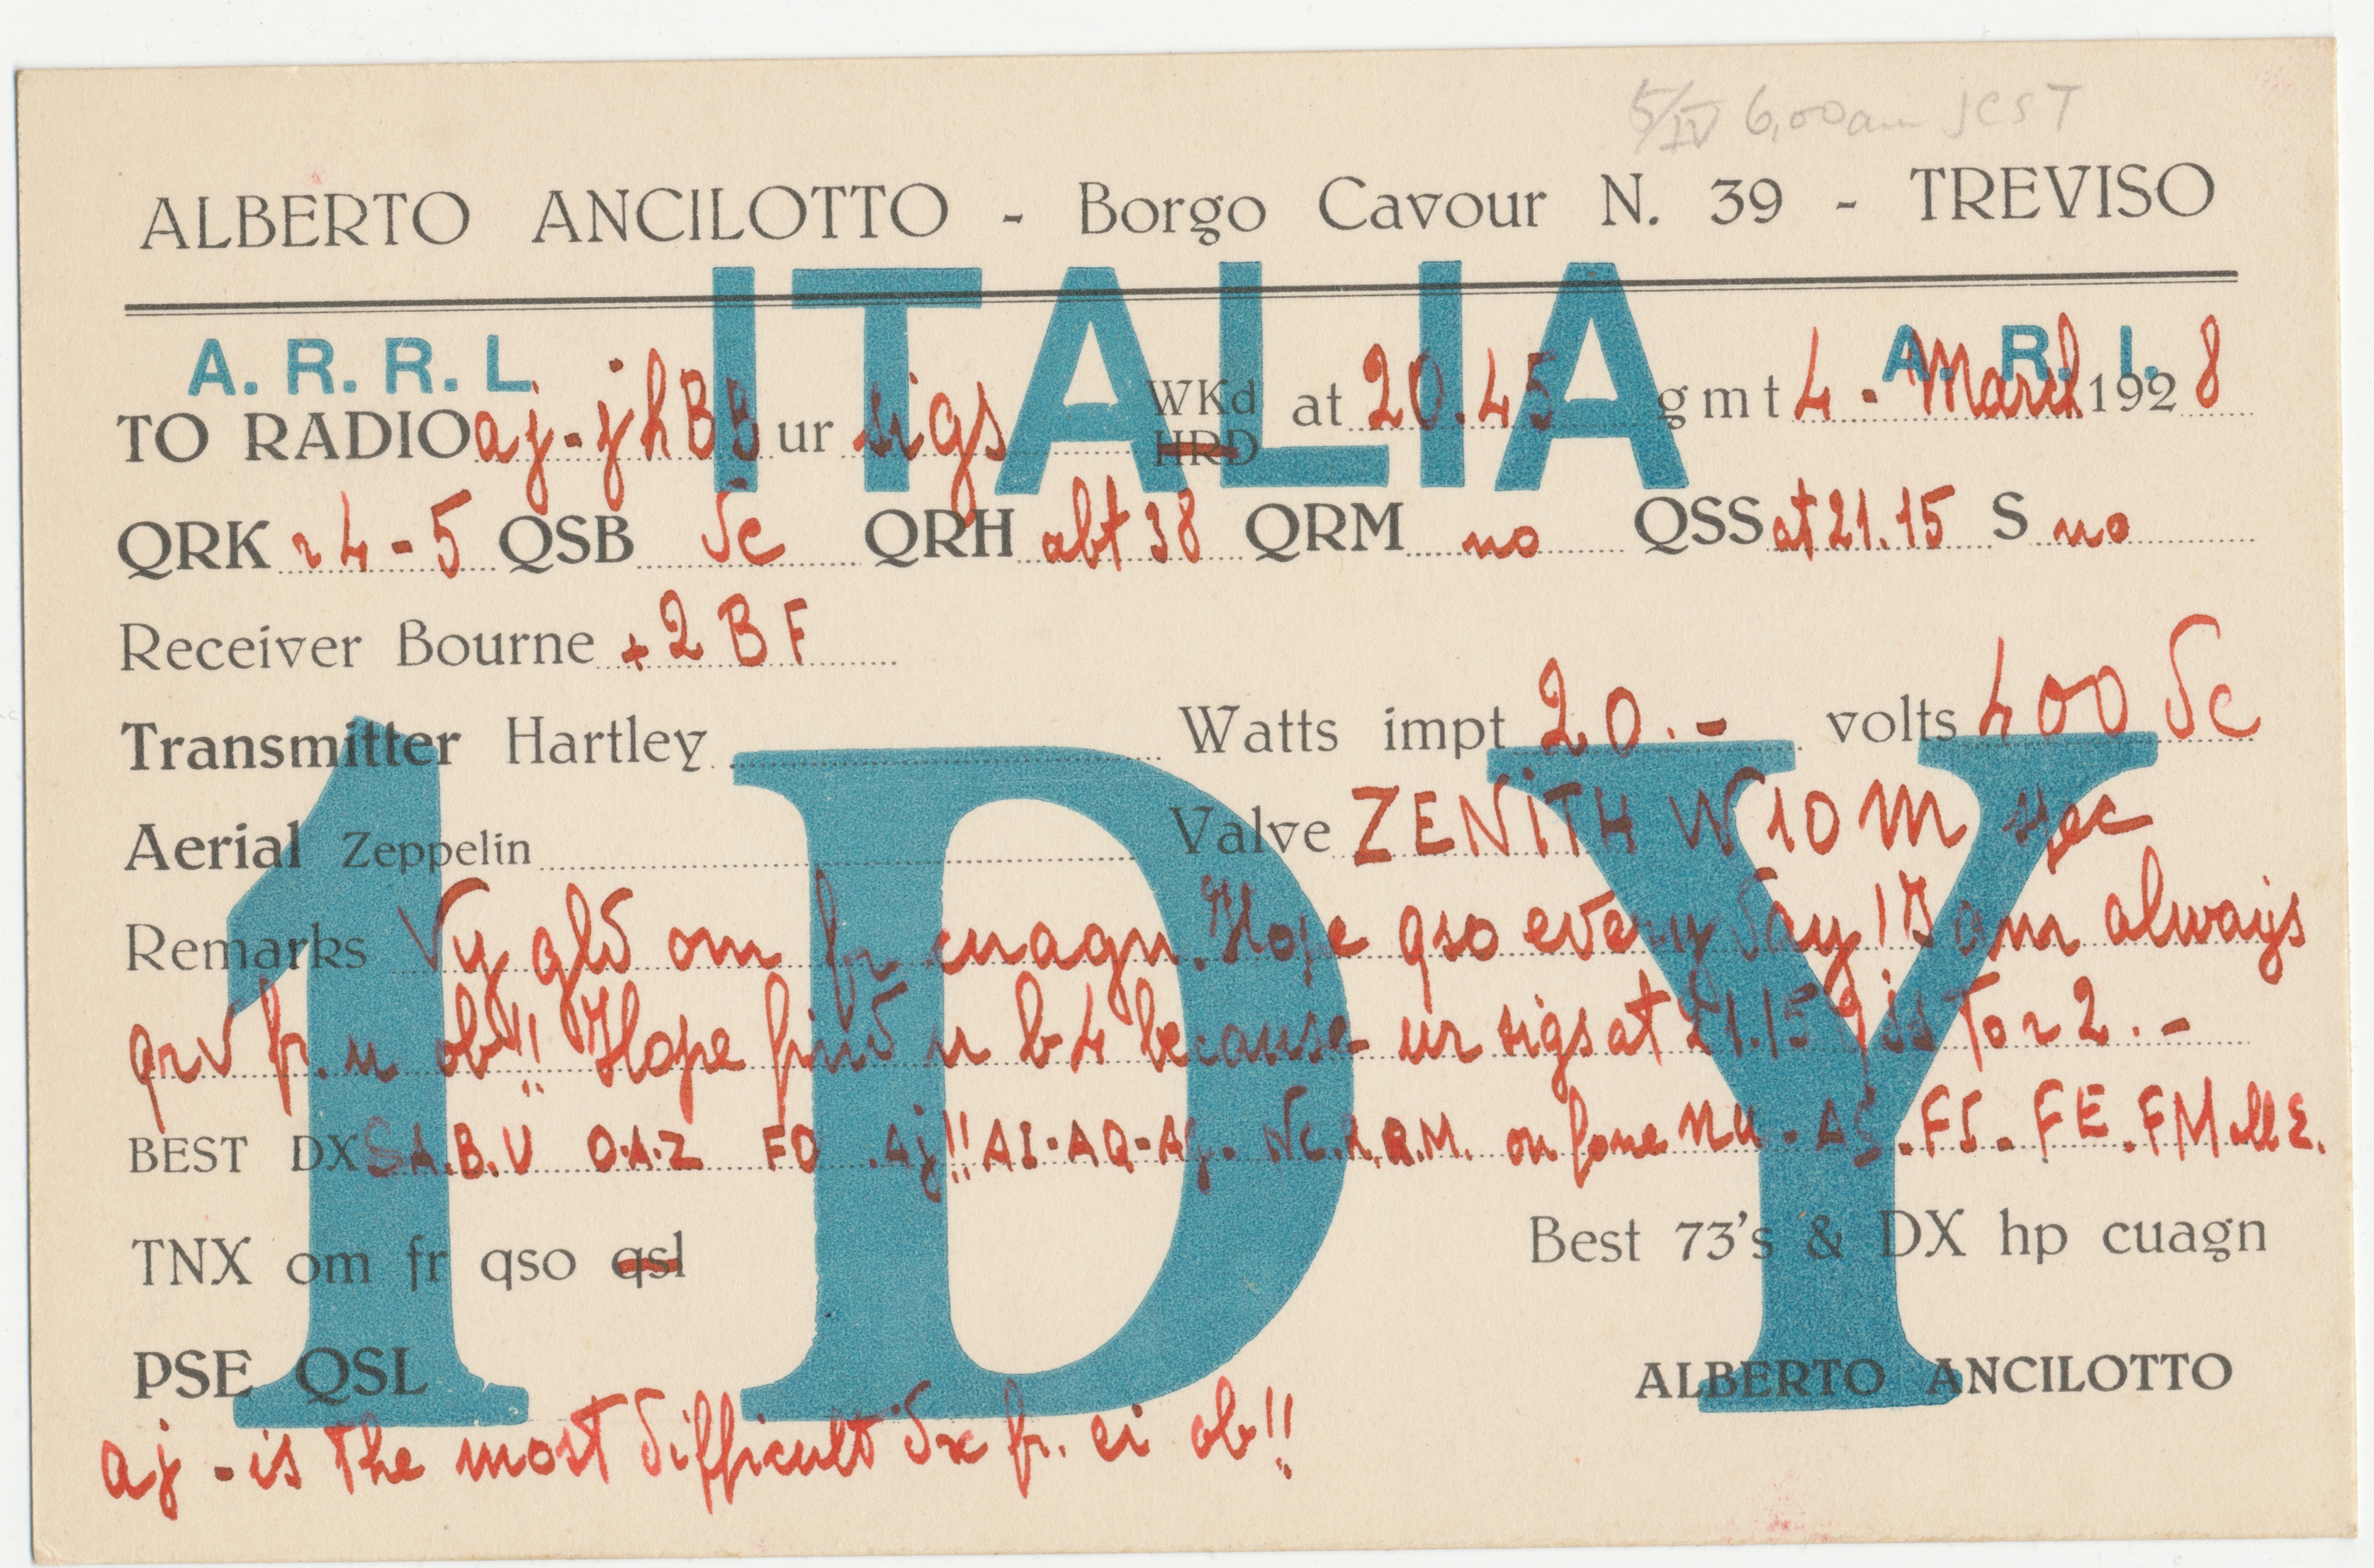 5/IV 6,00am JCST
ALBERTO ANCILOTTO - Borgo Cavour N. 39 - TREVISO
ITALIA
A. R. R. L. A. R. I.
TO RADIO aj-jhBB ur sigs WKd HRD at 20.45 gmt 4 - March 1928
QRK r4-5 QSB dc QRH abt 38 QRM no QSS at 21.15 S no
Receiver Bourne +2 BF
Transmitter Hartley Watts impt 20.- volts 400 dc
Aerial Zeppelin Valve ZENITH W10 M
1DY
Remarks Vy gld om fr cuagn. Hope qso every day! I am always
qrv fr. u ob!! Hope find u b4 because ur sigs at 21.15 qss to r2.-
BEST DX S.A.B.U O.A.Z FO .Aj!! AI-AQ-AG- on fone nu - AS.FS. FE.FM
TNX om fr qso qsl Best 73's & DX hp cuagn
PSE QSL ALBERTO ANCILOTTO
aj - is the most difficult dx fr. ei ob!!